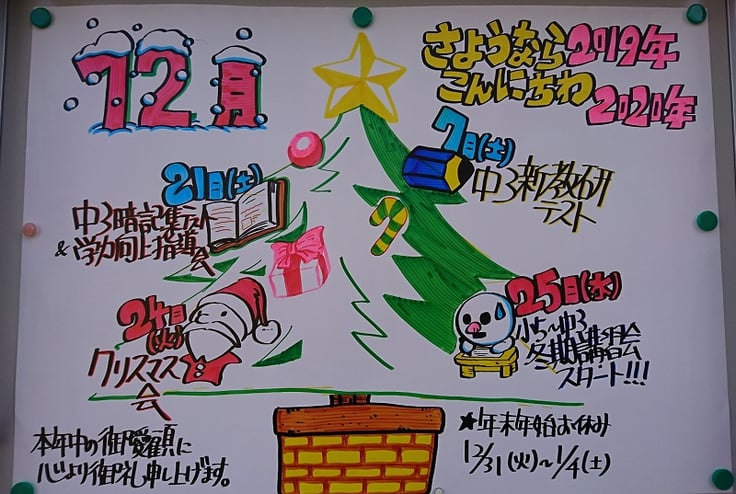 12月
さようなら2019年
こんにちわ2020年
7日(土)
中3新教研
テスト
21日(土)
中3暗記集テスト
&学力向上指導会
24日(火)
クリスマス
会
25日(水)
小5〜中3
冬期講習会
スタート!!!
本年中の御愛顧に
心より御礼申し上げます。
★年末年始お休み
12/31(火)〜1/4(土)